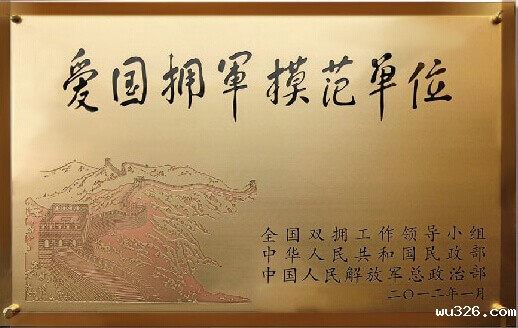 爱国拥軍模范单位
全国双拥工作领导小组
中华人民共和国民政部
中国人民解放军总政治部
二〇一二年一月
wu326.com